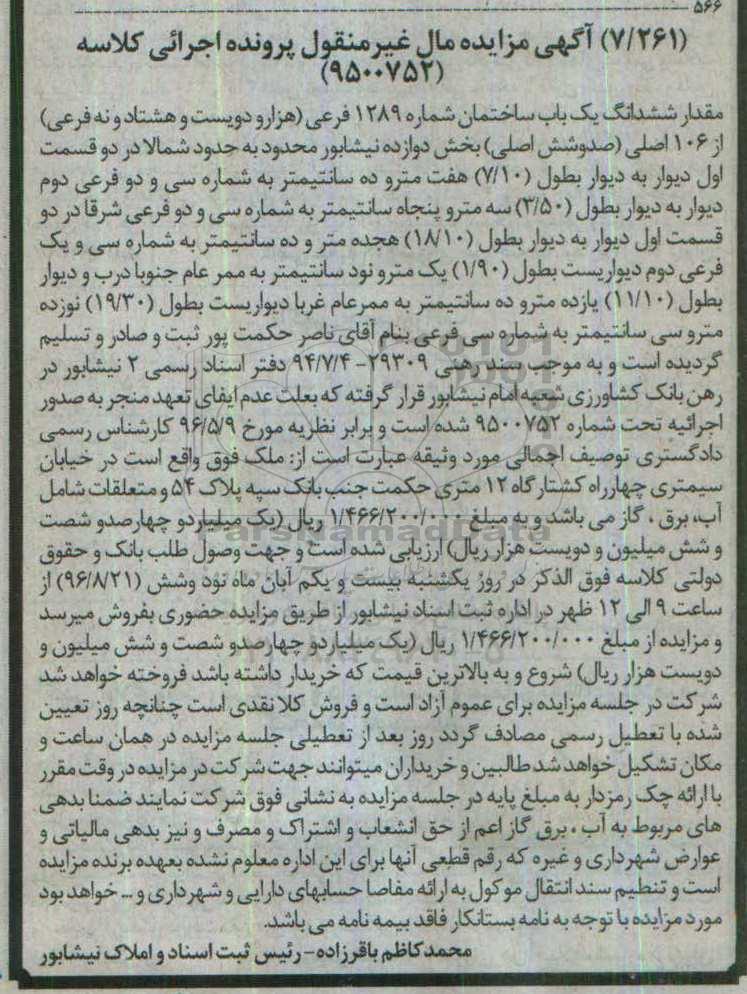 ۵۶۶
(۷/۲۶۱) آگهی مزایده مال غیرمنقول پرونده اجرائی کلاسه
(۹۵۰۰۷۵۲)
مقدار ششدانگ یک باب ساختمان شماره ۱۲۸۹ فرعی (هزارو دویست و هشتاد و نه فرعی)
از ۱۰۶ اصلی (صدوشش اصلی) بخش دوازده نیشابور محدود به حدود شمالا در دو قسمت
اول دیوار به دیوار بطول (۷/۱۰) هفت مترو ده سانتیمتر به شماره سی و دو فرعی دوم
دیوار به دیوار بطول (۳/۵۰) سه مترو پنجاه سانتیمتر به شماره سی و دو فرعی شرقا در دو
قسمت اول دیوار به دیوار بطول (۱۸/۱۰) هجده متر و ده سانتیمتر به شماره سی و یک
فرعی دوم دیواریست بطول (۱/۹۰) یک مترو نود سانتیمتر به ممر عام جنوبا درب و دیوار
بطول (۱۱/۱۰) یازده مترو ده سانتیمتر به ممرعام غربا دیواریست بطول (۱۹/۳۰) نوزده
مترو سی سانتیمتر به شماره سی فرعی بنام آقای ناصر حکمت پور ثبت و صادر و تسلیم
گردیده است و به موجب سند رهنی ۲۹۳۰۹-۹۴/۷/۴ دفتر اسناد رسمی ۲ نیشابور در
رهن بانک کشاورزی شعبه امام نیشابور قرار گرفته که بعلت عدم ایفای تعهد منجر به صدور
اجرائیه تحت شماره ۹۵۰۰۷۵۲ شده است و برابر نظریه مورخ ۹۶/۵/۹ کارشناس رسمی
دادگستری توصیف اجمالی مورد وثیقه عبارت است از: ملک فوق واقع است در خیابان
سیمتری چهارراه کشتارگاه ۱۲ متری حکمت جنب بانک سپه پلاک ۵۴ و متعلقات شامل
آب، برق ، گاز می باشد و به مبلغ ۱/۴۶۶/۲۰۰/۰۰۰ ریال (یک میلیاردو چهارصدو شصت
و شش میلیون و دویست هزار ریال) ارزیابی شده است و جهت وصول طلب بانک و حقوق
دولتی کلاسه فوق الذکر در روز یکشنبه بیست و یکم آبان ماه نود وشش (۹۶/۸/۲۱) از
ساعت ۹ الی ۱۲ ظهر در اداره ثبت اسناد نیشابور از طریق مزایده حضوری بفروش میرسد
و مزایده از مبلغ ۱/۴۶۶/۲۰۰/۰۰۰ ریال (یک میلیاردو چهارصدو شصت و شش میلیون و
دویست هزار ریال) شروع و به بالاترین قیمت که خریدار داشته باشد فروخته خواهد شد
شرکت در جلسه مزایده برای عموم آزاد است و فروش کلا نقدی است چنانچه روز تعیین
شده با تعطیل رسمی مصادف گردد روز بعد از تعطیلی جلسه مزایده در همان ساعت و
مکان تشکیل خواهد شد طالبین و خریداران میتوانند جهت شرکت در مزایده در وقت مقرر
با ارائه چک رمزدار به مبلغ پایه در جلسه مزایده به نشانی فوق شرکت نمایند ضمنا بدهی
های مربوط به آب ، برق گاز اعم از حق انشعاب و اشتراک و مصرف و نیز بدهی مالیاتی و
عوارض شهرداری و غیره که رقم قطعی آنها برای این اداره معلوم نشده بعهده برنده مزایده
است و تنظیم سند انتقال موکول به ارائه مفاصا حسابهای دارایی و شهرداری و ... خواهد بود
مورد مزایده با توجه به نامه بستانکار فاقد بیمه نامه می باشد.
محمدکاظم باقرزاده - رئیس ثبت اسناد و املاک نیشابور
ParsNamadData